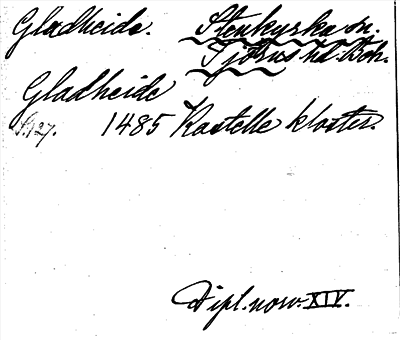 Gladheide. Stenkyrka sn.
Tjörns hd. Boh.
Gladheide
S. 127. 1485 Kastelle kloster.
Dipl. norv. XIV.